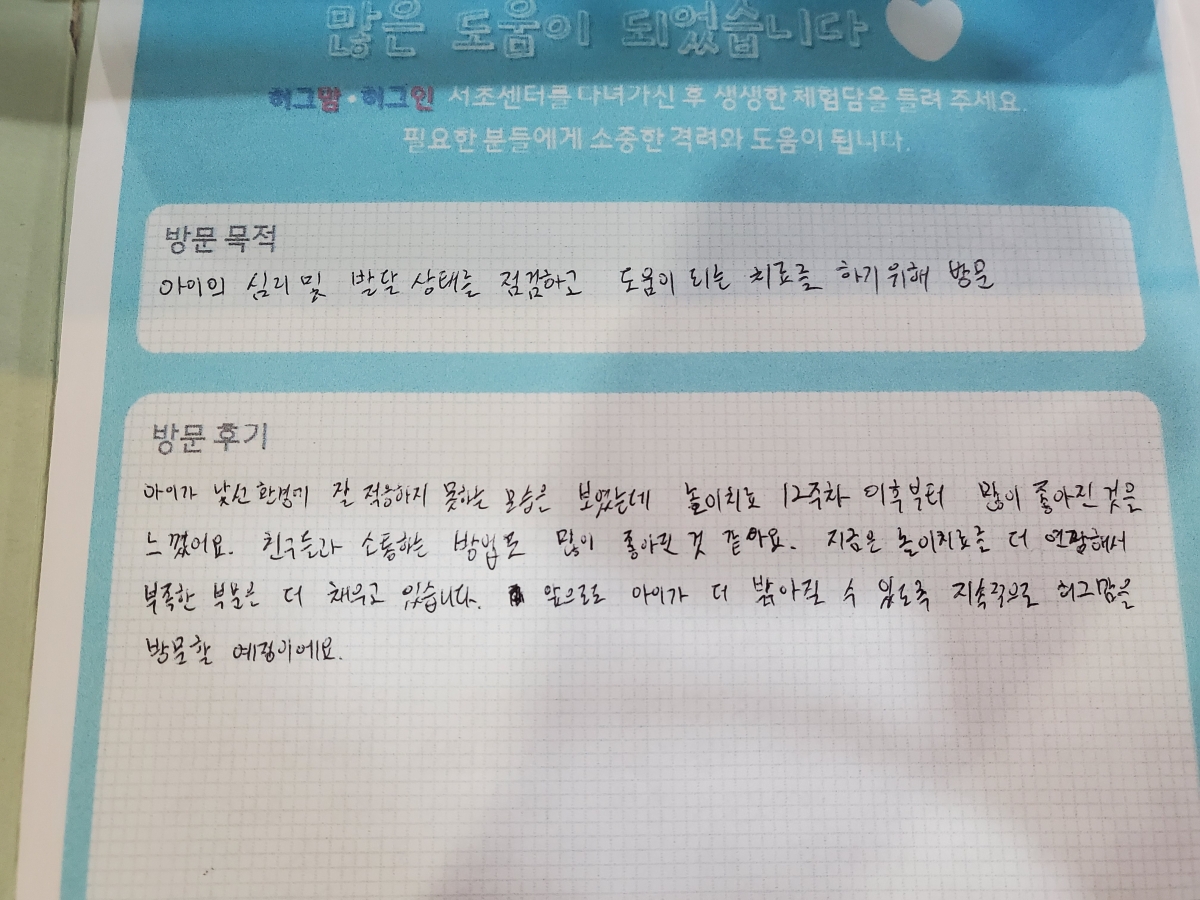 많은 도움이 되었습니다
허그맘·허그인 서초센터를 다녀가신 후 생생한 체험담을 들려 주세요.
필요한 분들에게 소중한 격려와 도움이 됩니다.
방문 목적
아이의 심리 및 발달 상태를 점검하고 도움이 되는 치료를 하기 위해 방문
방문 후기
아이가 낯선 환경에 잘 적응하지 못하는 모습은 보였는데 놀이치료 12주차 이후부터 많이 좋아진 것을
느꼈어요. 친구들과 소통하는 방법도 많이 좋아진 것 같아요. 지금은 놀이치료를 더 연장해서
부족한 부분을 더 채우고 있습니다. 앞으로도 아이가 더 밝아질 수 있도록 지속적으로 허그맘을
방문할 예정이에요.